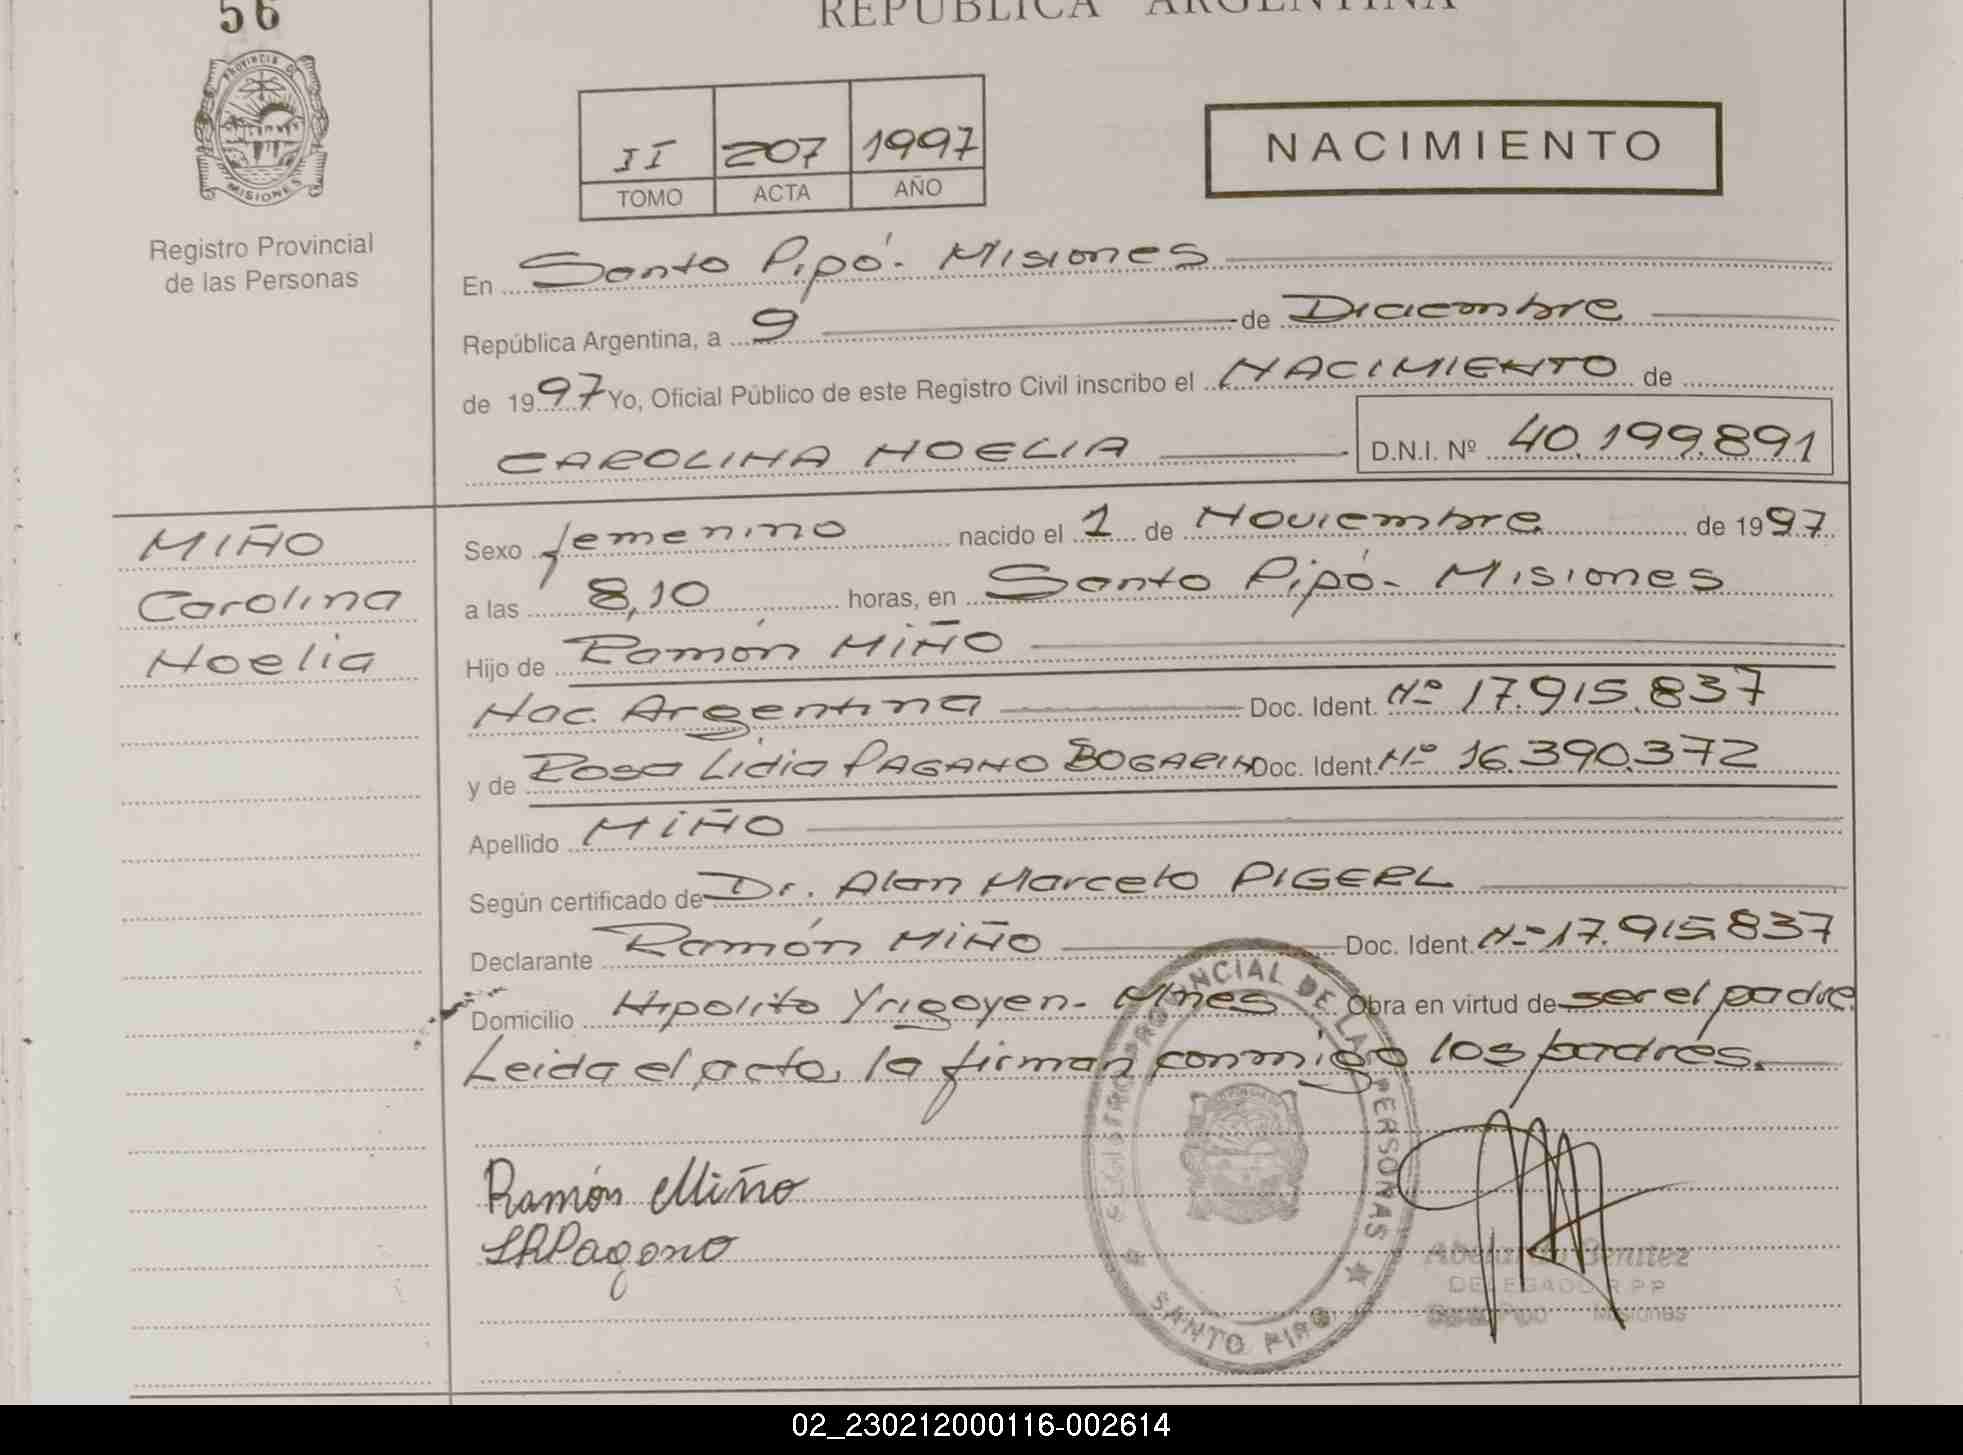 56
REPUBLICA ARGENTINA
PROVINCIA DE
MISIONES
Registro Provincial
de las Personas
II 207 1997
TOMO ACTA AÑO
NACIMIENTO
En Santo Pipó - Misiones
República Argentina, a 9 de Diciembre
de 1997 Yo, Oficial Público de este Registro Civil inscribo el NACIMIENTO de
CAROLINA NOELIA D.N.I. Nº 40.199.891
MIÑO
Carolina
Noelia
Sexo femenino nacido el 1 de Noviembre de 1997
a las 8,10 horas, en Santo Pipó - Misiones
Hijo de Ramón MIÑO
Nac. Argentina Doc. Ident. Nº 17.915.837
y de Rosa Lidia PAGANO BOGARIN Doc. Ident. Nº 16.390.372
Apellido MIÑO
Según certificado de Dr. Alan Marcelo PIGERL
Declarante Ramón MIÑO Doc. Ident. Nº 17.915.837
Domicilio Hipolito Yrigoyen - Mnes Obra en virtud de ser el padre
Leida el acta, la firman conmigo los padres.
REGISTRO PROVINCIAL DE LAS PERSONAS
SANTO PIPO
Ramón Miño
Pagano
Benitez
DELEGADO R.P.P
Santo Pipó Misiones
02_230212000116-002614